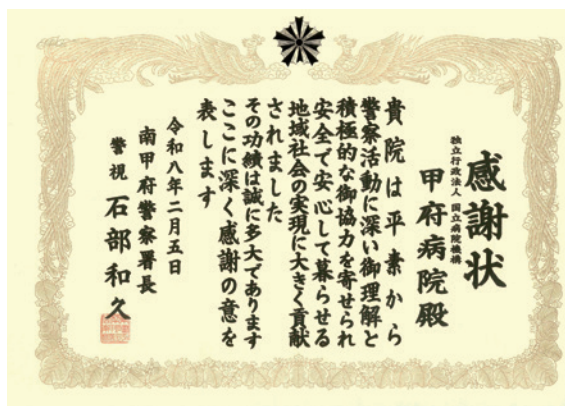 感謝状
独立行政法人 国立病院機構
甲府病院殿
貴院は平素から
警察活動に深い御理解と
積極的な御協力を寄せられ
安全で安心して暮らせる
地域社会の実現に大きく貢献
されました
その功績は誠に多大であります
ここに深く感謝の意を
表します
令和八年二月五日
南甲府警察署長
警視 石部和久